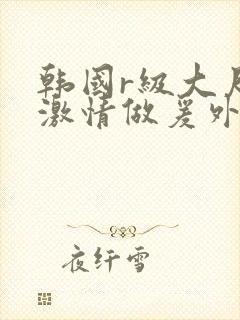 韩國r級大尺
激情做爰外
夜纤雪